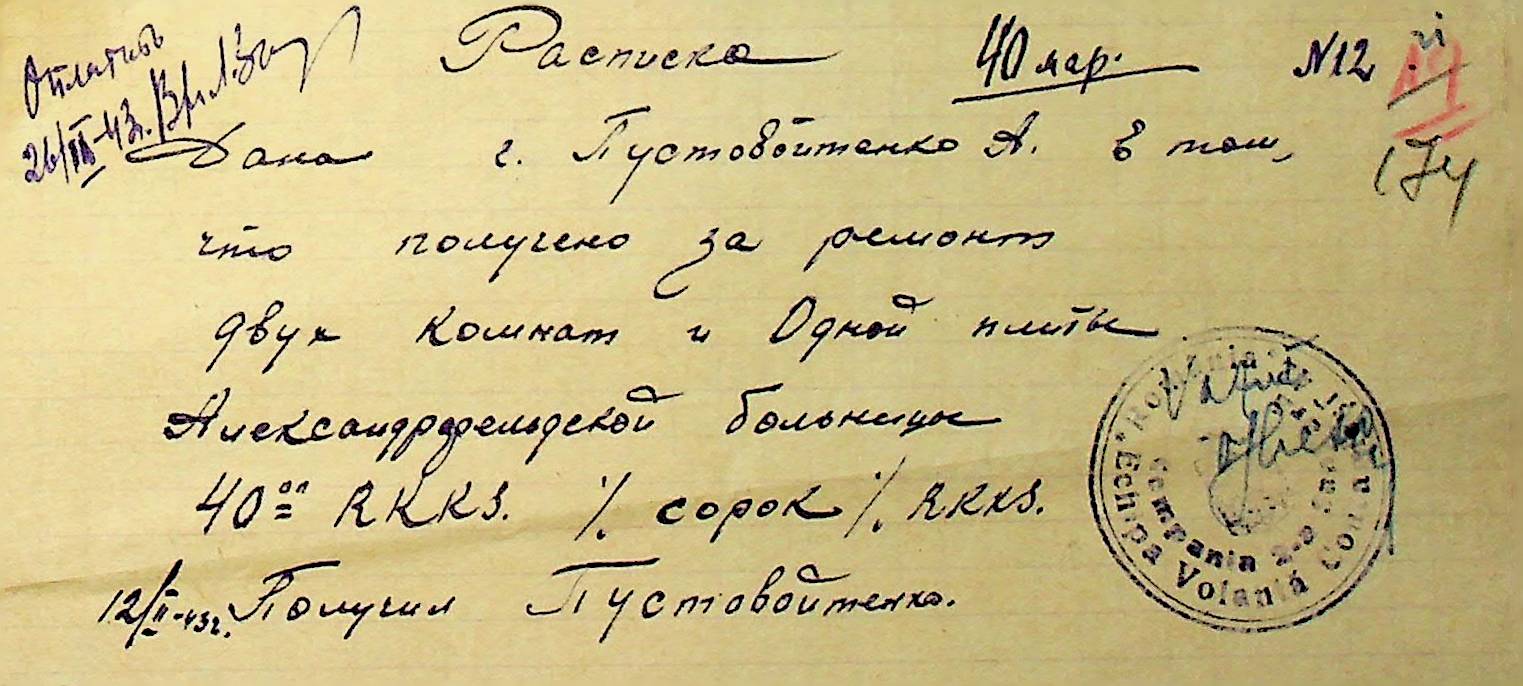 Оплатить
26/III-43г.
Расписка 40 мар. N12
174
Дана г. Пустовойтенко А. в том,
что получено за ремонт
двух комнат и Одной плиты
Александрфельдской больницы
40 оо RKKS. ./. сорок ./. RKKS.
12/II-43г. Получил Пустовойтенко.
România
Echipa Volantă
Compania 2-a